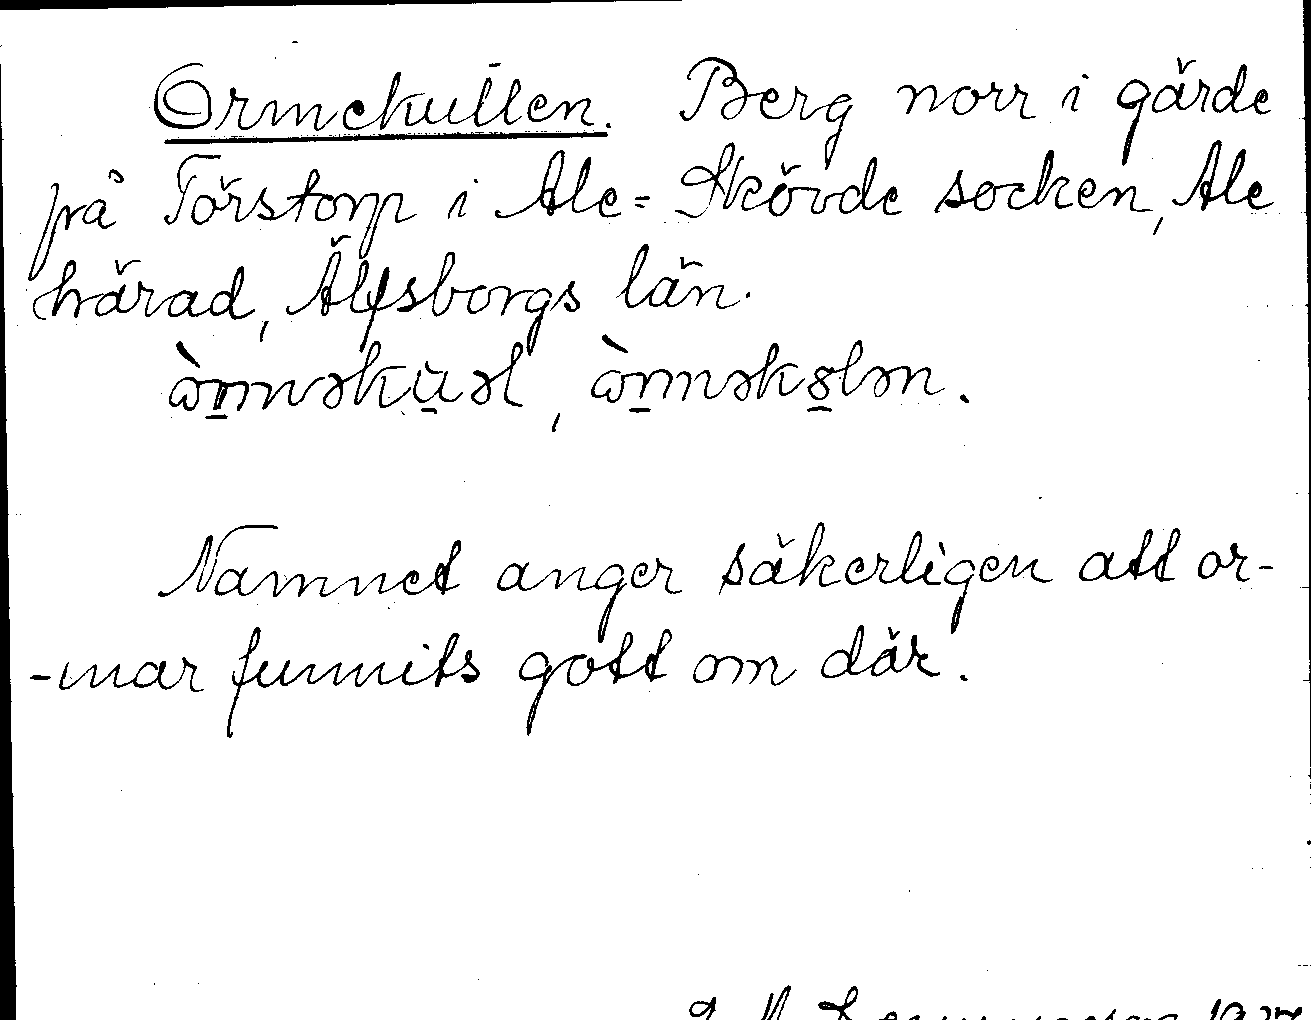 Ormekullen. Berg norr i gärde
på Törstorp i Ale-Skövde socken, Ale
härad, Älfsborgs län.
Namnet anger säkerligen att or-
-mar funnits gott om där.